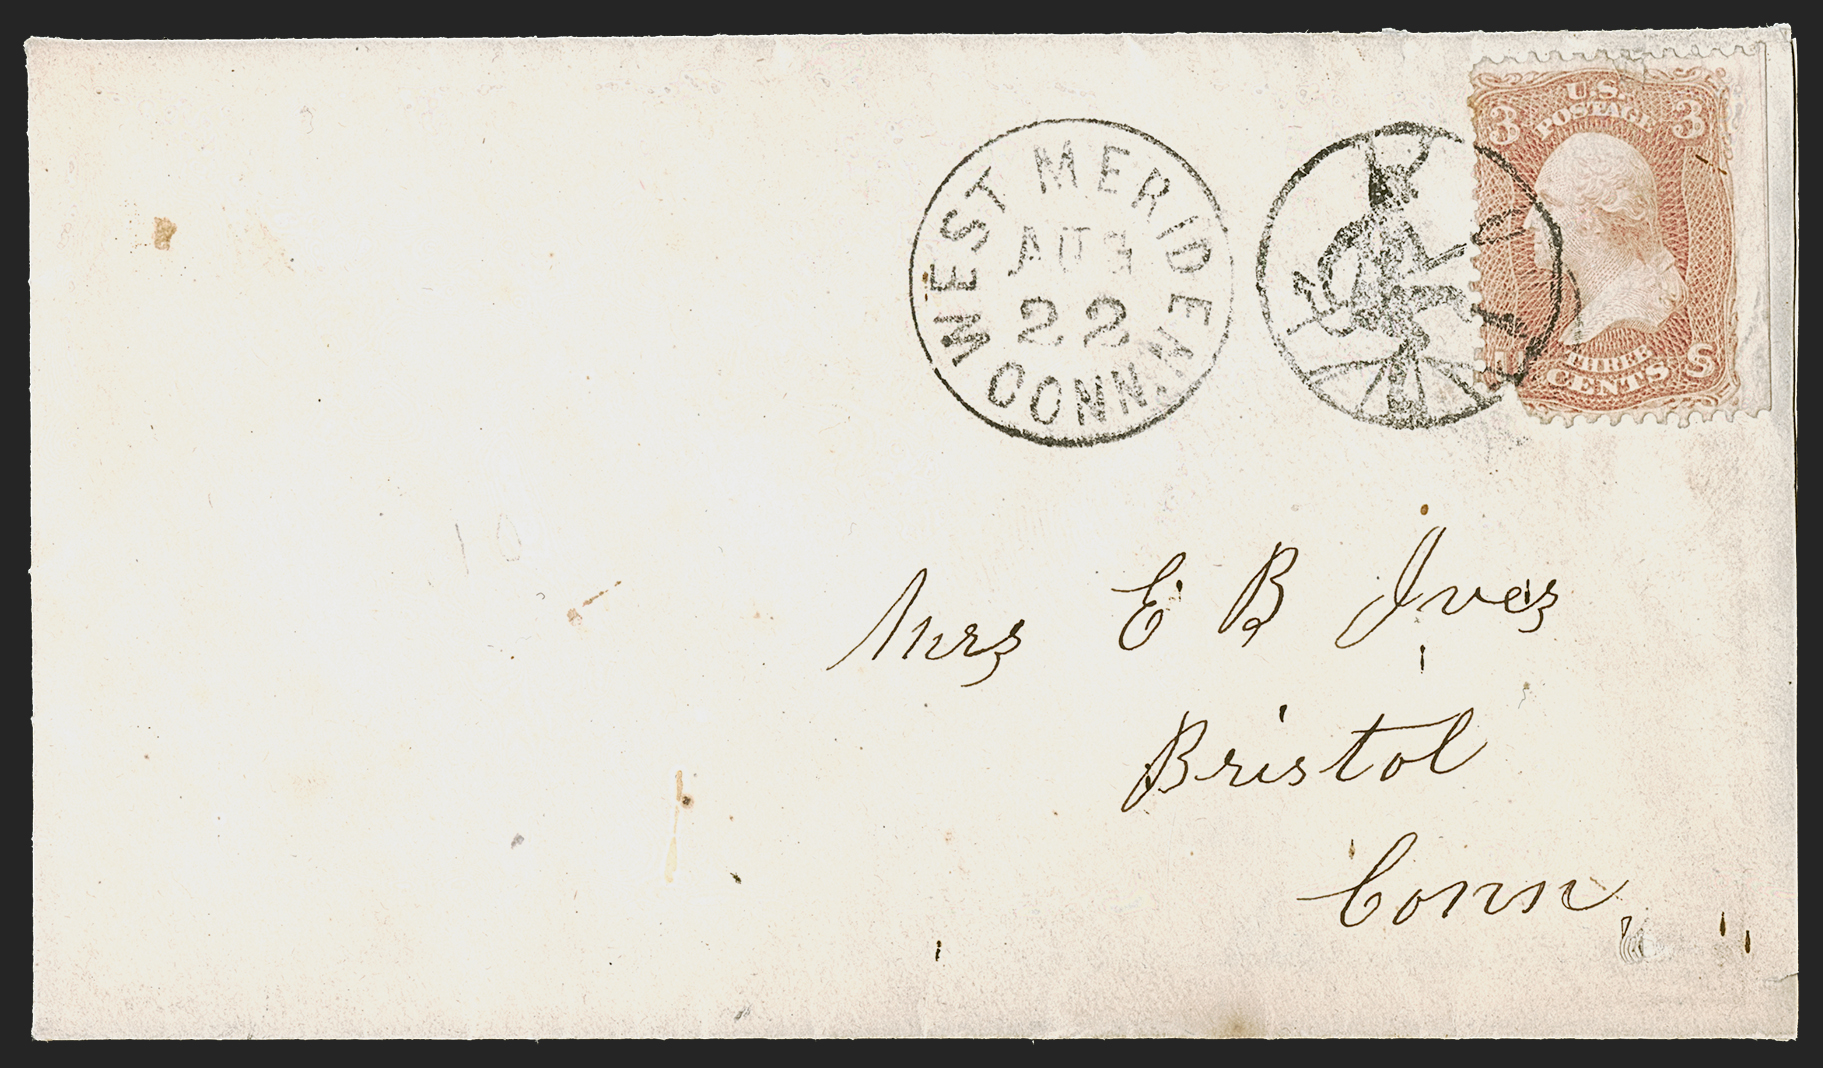 WEST MERIDEN
AUG
22
CONN.
U.S.
POSTAGE
3 3
THREE
U CENTS S
Mrs E B Ives
Bristol
Conn
10